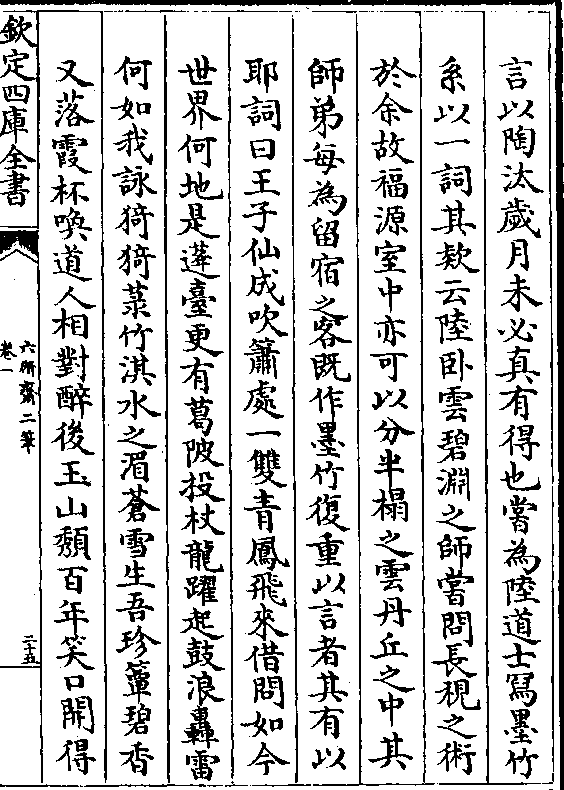 言以陶汰歲月未必真有得也嘗為陸道士寫墨竹
系以一詞其欵云陸卧雲碧淵之師嘗問長視之術
於余故福源室中亦可以分半榻之雲丹丘之中其
師弟每為留宿之客既作墨竹復重以言者其有以
耶詞曰王子仙成吹簫處一雙青鳳飛來借問如今
世界何地是蓬臺更有葛陂投杖龍躍起鼓浪轟雷
何如我詠猗猗菉竹淇水之湄蒼雪生吾珍簟碧香
又落霞杯喚道人相對醉後玉山頹百年笑口開得
欽定四庫全書
六研齋二筆
卷一
二十五